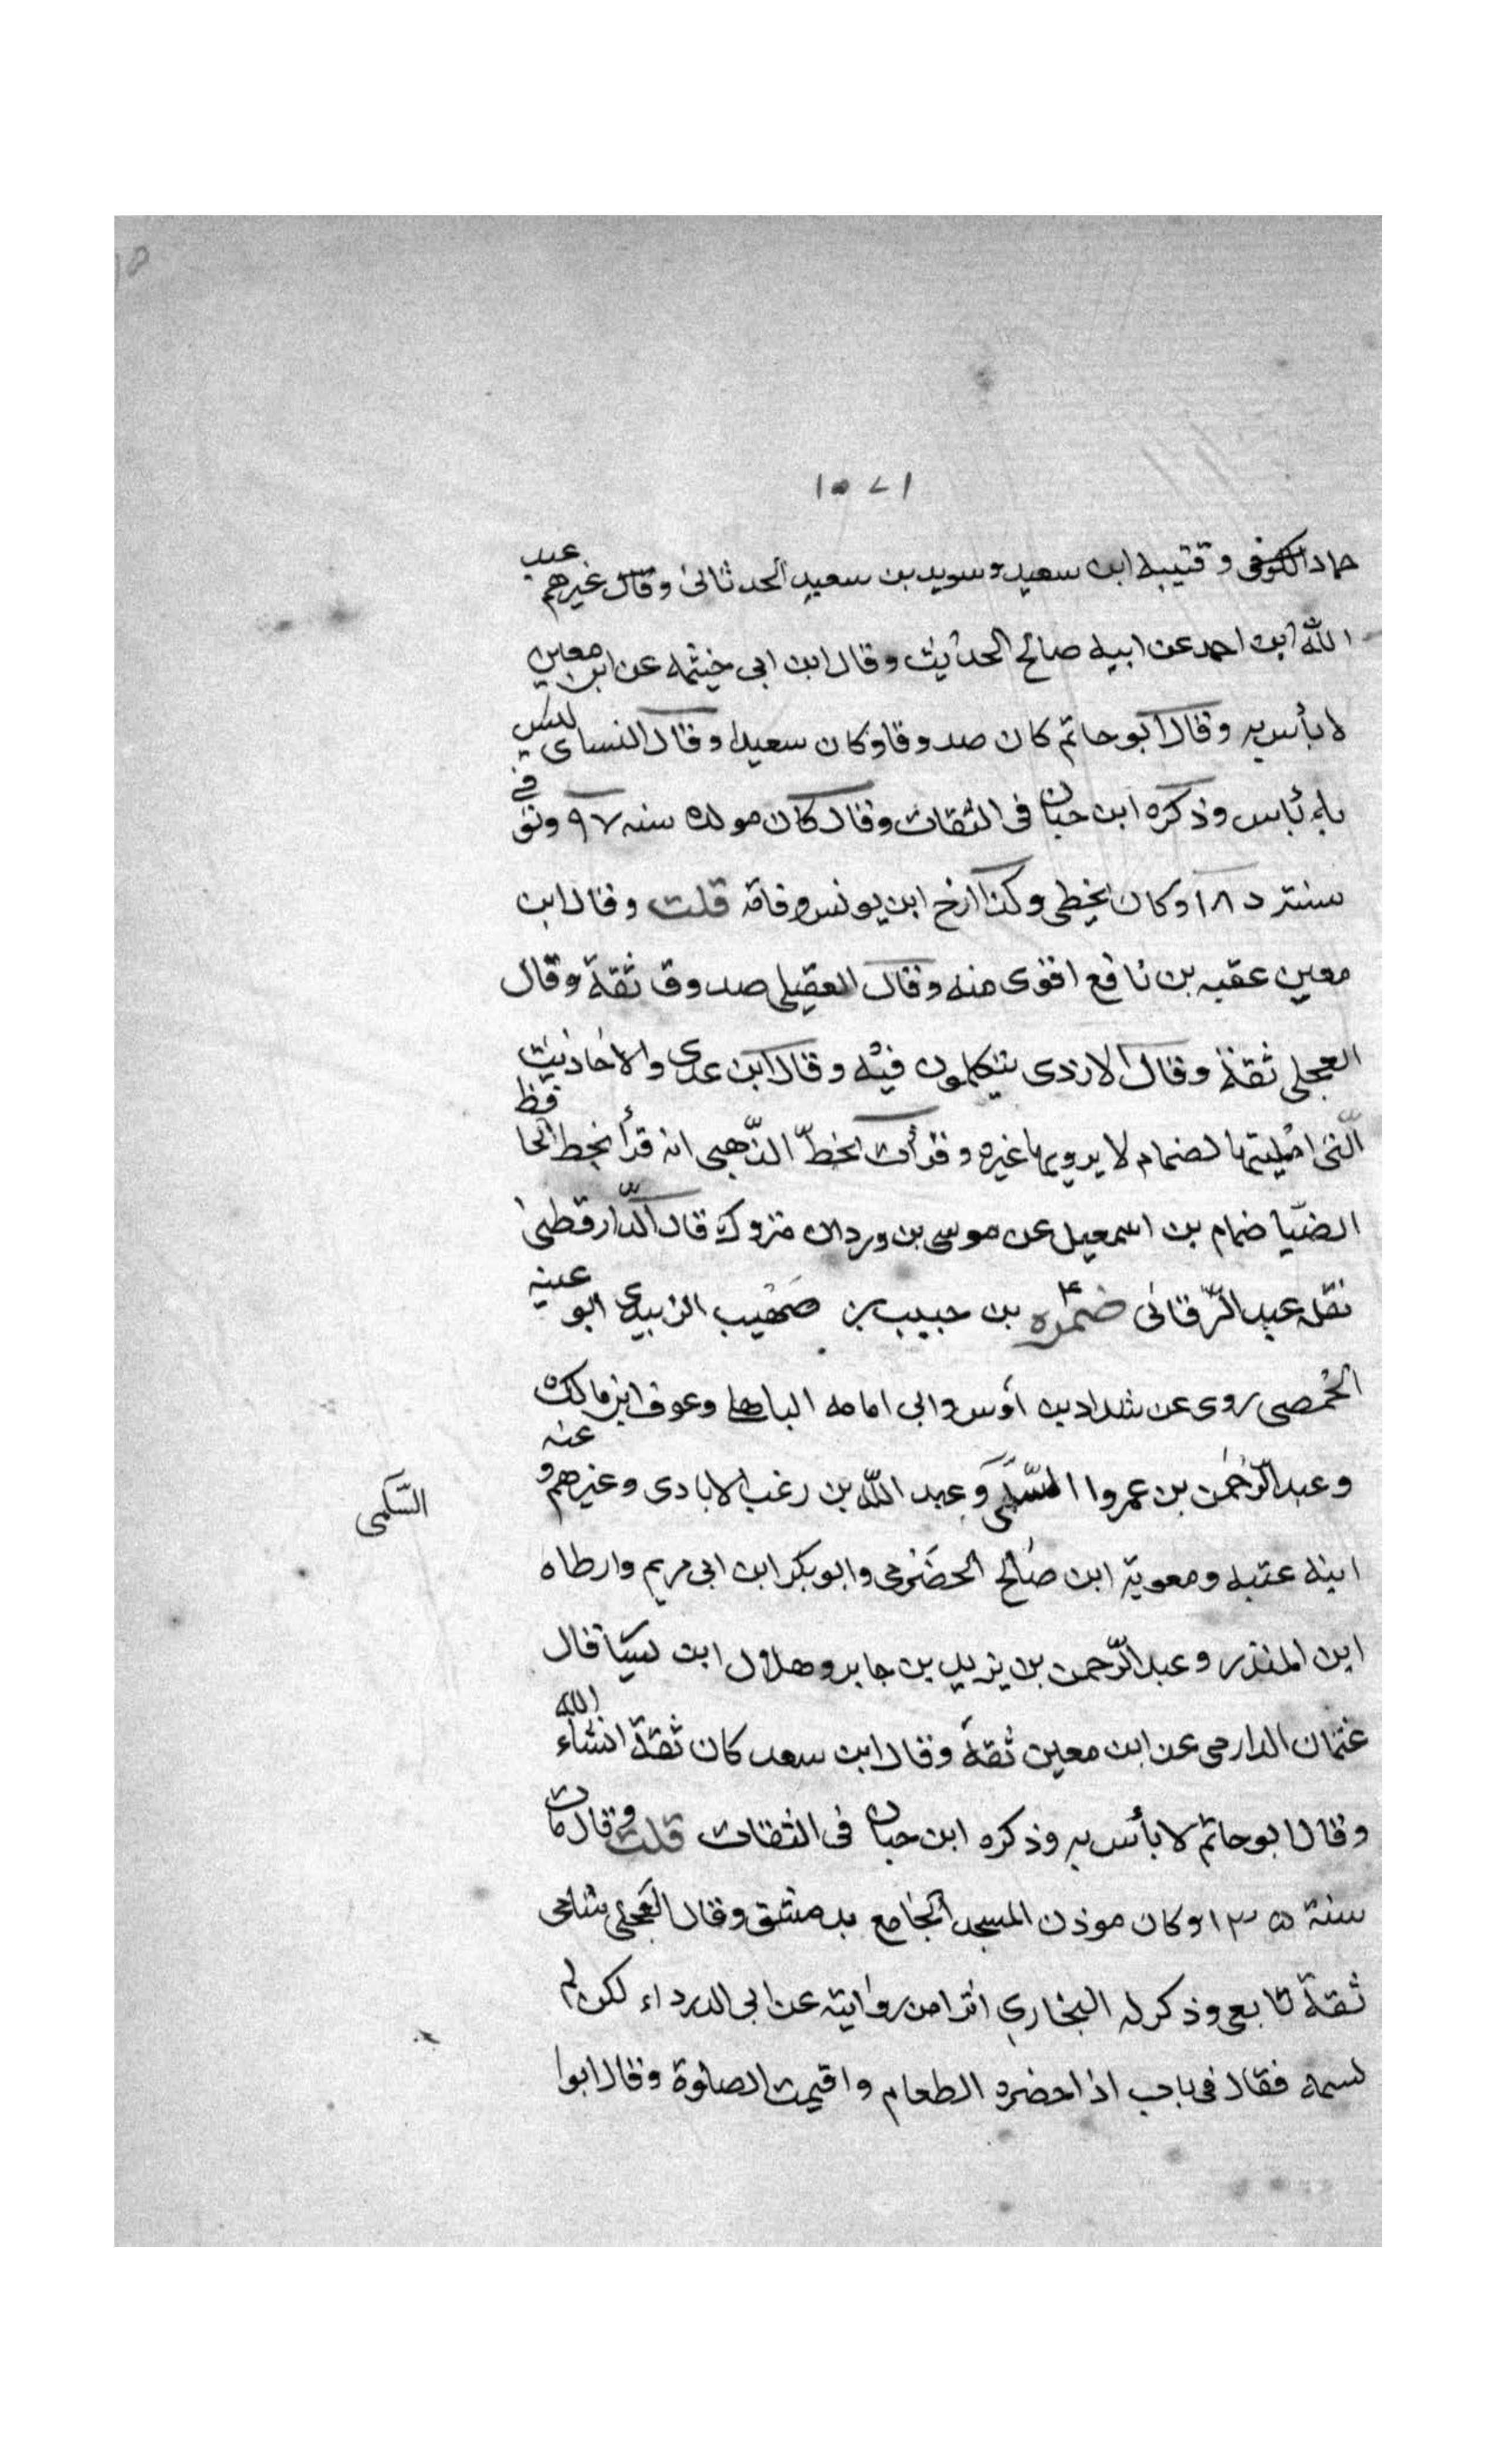 ١٥٧١
حماد الكوفى وقتيبه ابن سعيد وسويد بن سعيد الحدثانى وقال غيرهم عبد
الله ابن احمد عن ابيه صالح الحديث وقال ابن ابى خيثمه عن ابن معين
لا بأس به وقال ابو حاتم كان صدوقا وكان سعيدا وقال النساى ليس
به بأس وذكره ابن حبان فى الثقات وقال كان مولده سنه ٩٧ وتوفى
سنة ١٨٥ وكان يخطى وكذا ارخ ابن يونس وفاته قلت وقال ابن
معين عقبه بن نافع اقوى منه وقال العقيلى صدوق ثقة وقال
العجلى ثقة وقال الازدى يتكلمون فيه وقال ابن عدى والاحاديث
الّتى امليتها لضمام لا يرويها غيره وقرأت بخطّ الذّهبى انه قرأ بخط الحافظ
الضيا ضمام بن اسمعيل عن موسى بن وردان متروك قال الدّارقطنى
نقله عبد البرقانى ضمره بن حبيب بن صهيب الزبيدى ابو عتبه
الحمصى روى عن شداد بن أوس وابى امامه الباهلى وعوف ابن مالك
وعبد الرّحمن بن عمروا السّلمى وعبد اللّه بن زغب الايادى وغيرهم وعنه
السّلمى
ابنه عتبه ومعوية ابن صالح الحضرمى وابو بكر ابن ابى مريم وارطاه
ابن المنذر وعبد الرّحمن بن يزيد بن جابر وهلال ابن يسار قال
عثمان الدارمى عن ابن معين ثقة وقال ابن سعد كان ثقة انشاء الله
وقال ابو حاتم لا بأس به وذكره ابن حبان فى الثقات قلت وقال مات
سنة ١٣٥ وكان موذن المسجد الجامع بدمشق وقال العجلى شامى
ثقة تابعى وذكر له البخارى اثرا من روايته عن ابى الدرداء لكن لم
يسمه فقال فى باب اذا حضره الطعام واقيمت الصلوة وقال ابوا